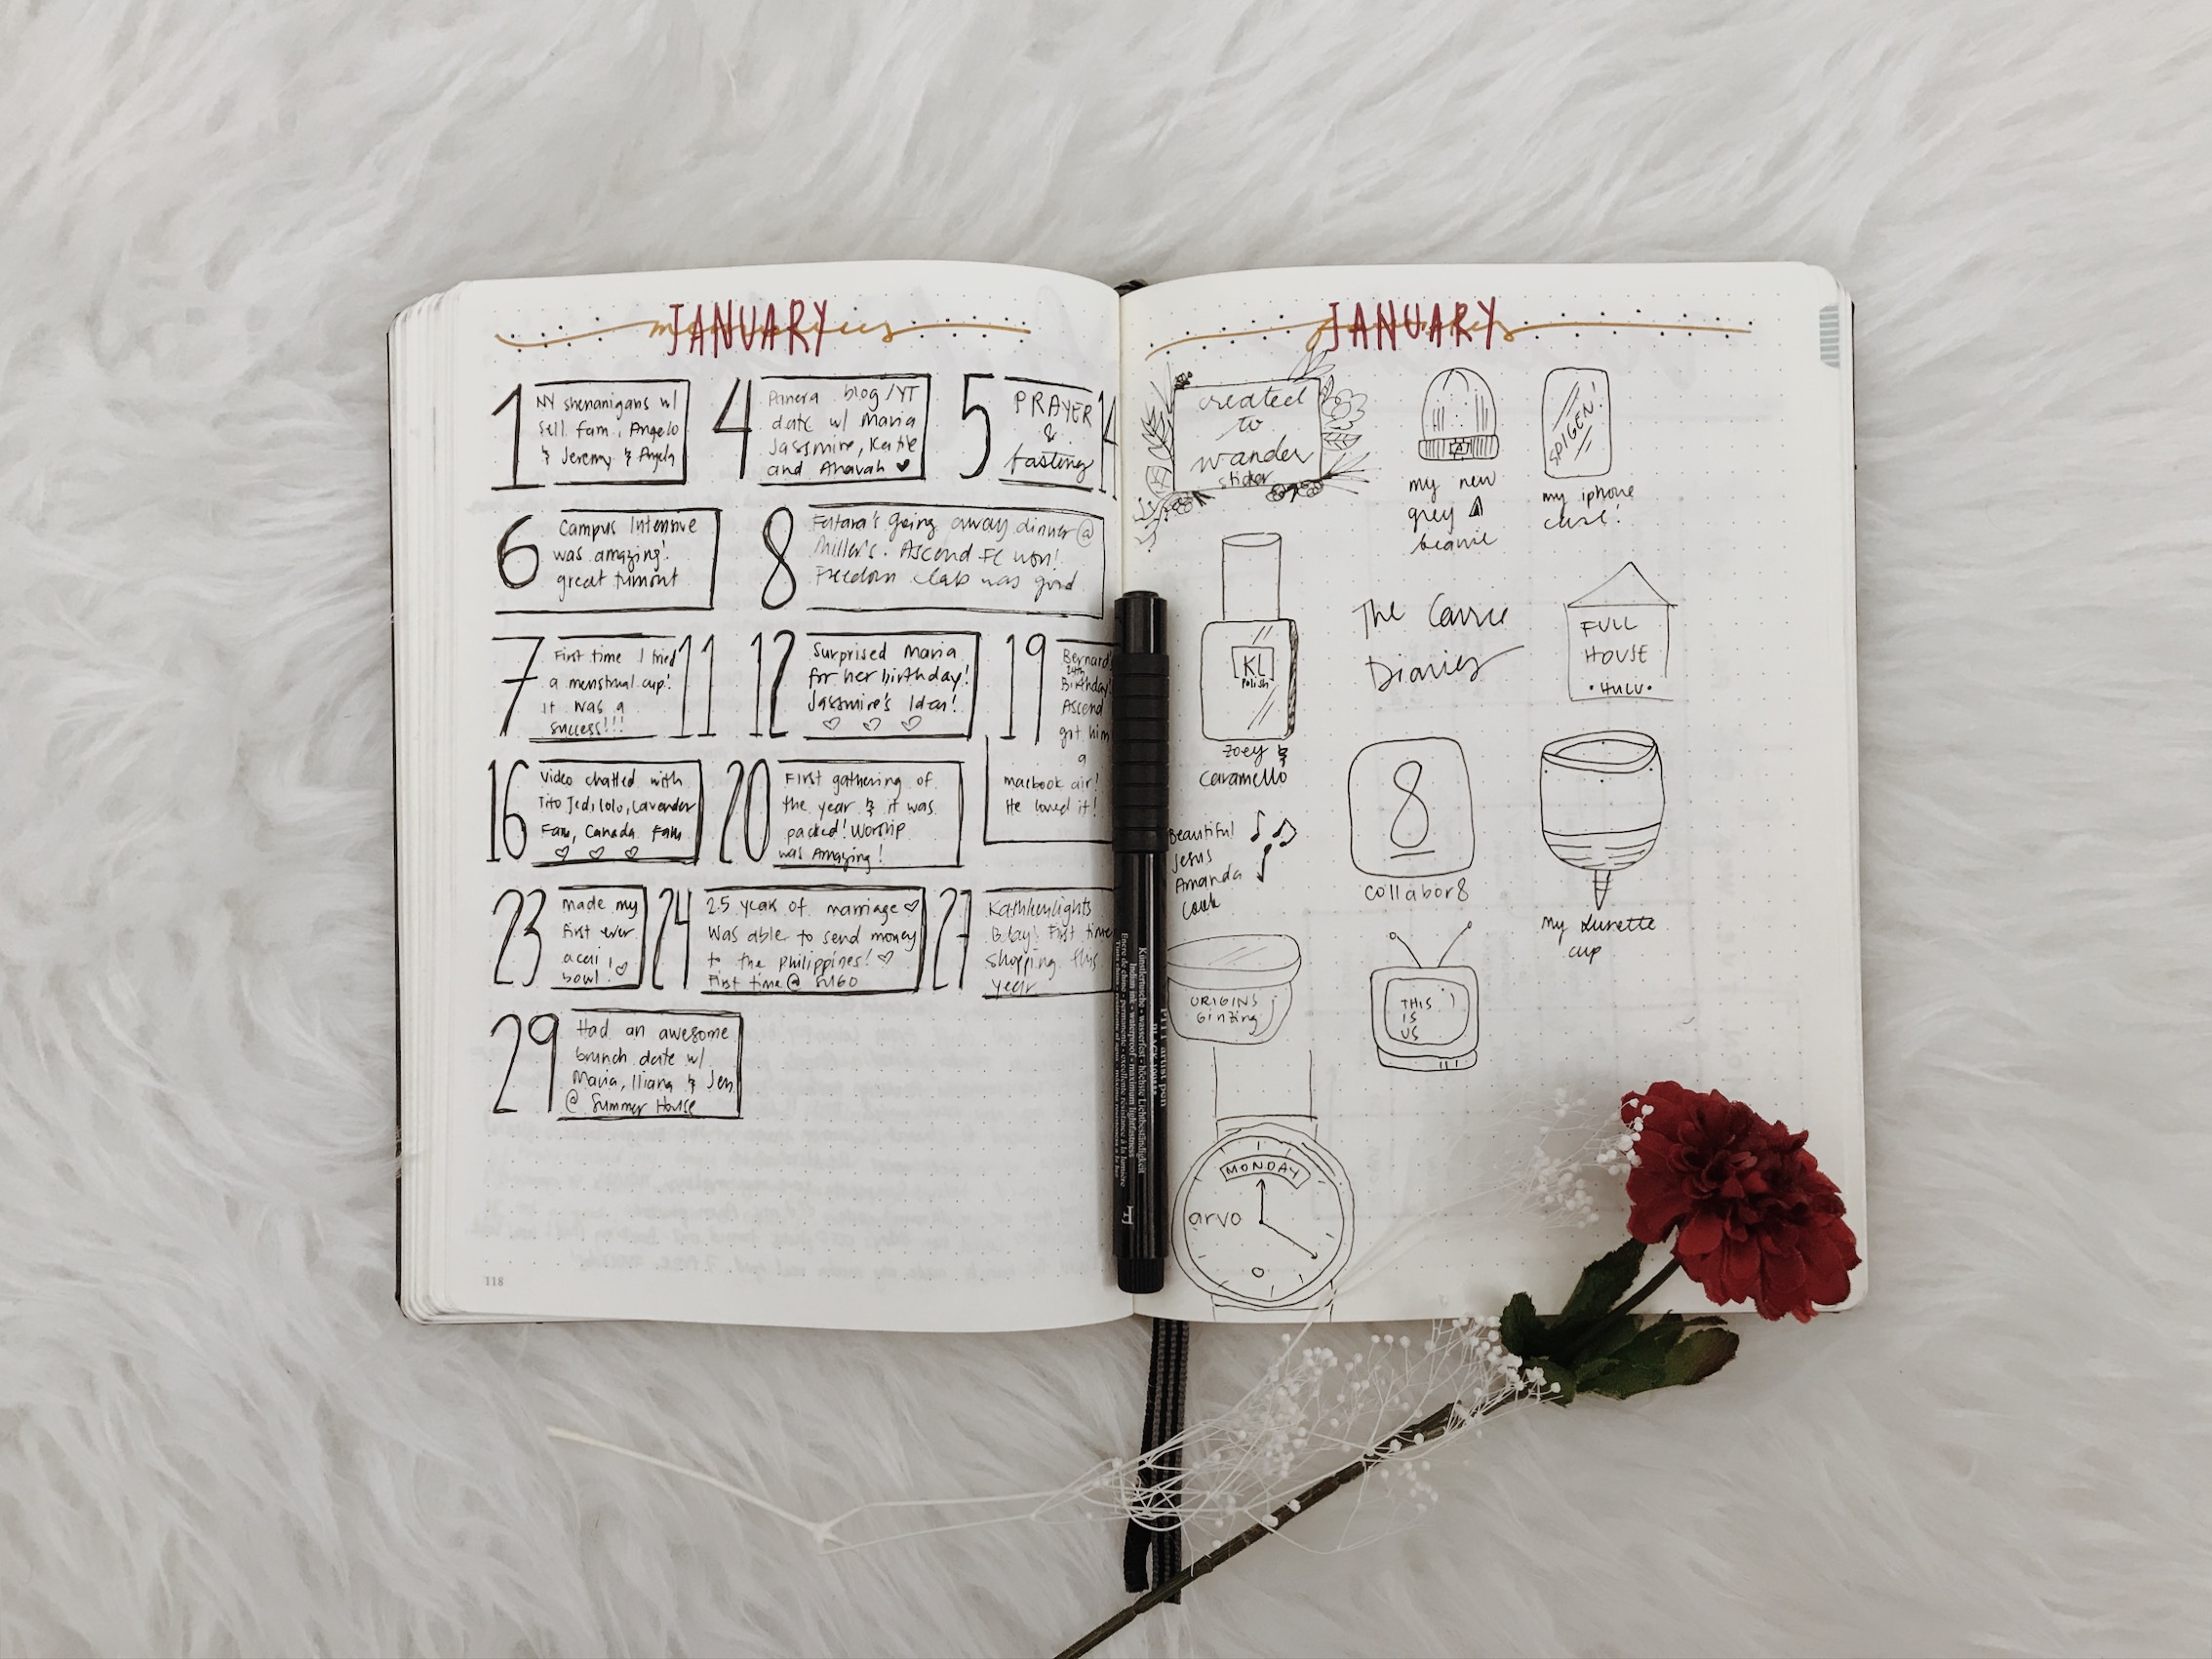 JANUARY
memories
1
NY shenanigans w/
Sell fam, Angelo
& Jeremy & Angela
4
Panera blog/YT
date w/ Maria
Jassmire, Katie
and Ahavah
5
PRAYER
&
fasting
6
Campus Intensive
was amazing!
great turnout
8
going away dinner @
Miller's. Ascend FC won!
Freedom club was good
7
First time I tried
a menstrual cup!
it was a
success!!!
11
12
Surprised Maria
for her birthday!
Jassmire's Idea!
19
Bernard's
24th
Birthday!
Ascend
got him
a
macbook air!
He loved it!
16
Video chatted with
Tito Jed, lolo, Lavender
Fam, Canada Fam
20
First gathering of
the year & it was
packed! Worship
was Amazing!
23
made my
first ever
acai
bowl!
24
25 years of marriage
Was able to send money
to the Philippines!
First time @
27
Kathleenlights
Bday! First time
shopping this
year
29
Had an awesome
brunch date w/
Maria, Iliana & Jen
@ Summer House
118
JANUARY
favorites
created
to
wander
sticker
my new
grey
beanie
SPIGEN!
my iphone
case!
KL
Polish
Zoey &
Caramello
The Carrie
Diaries
FULL
HOUSE
•HULU•
Beautiful
Jesus
Amanda
Cook
8
collabor8
my Lunette
cup
ORIGINS
Ginzing
THIS
IS
US
MONDAY
arvo
PITT artist pen
Künstlertusche • wasserfest • höchste Lichtbeständigkeit
Indian ink • waterproof • maximum lightfastness